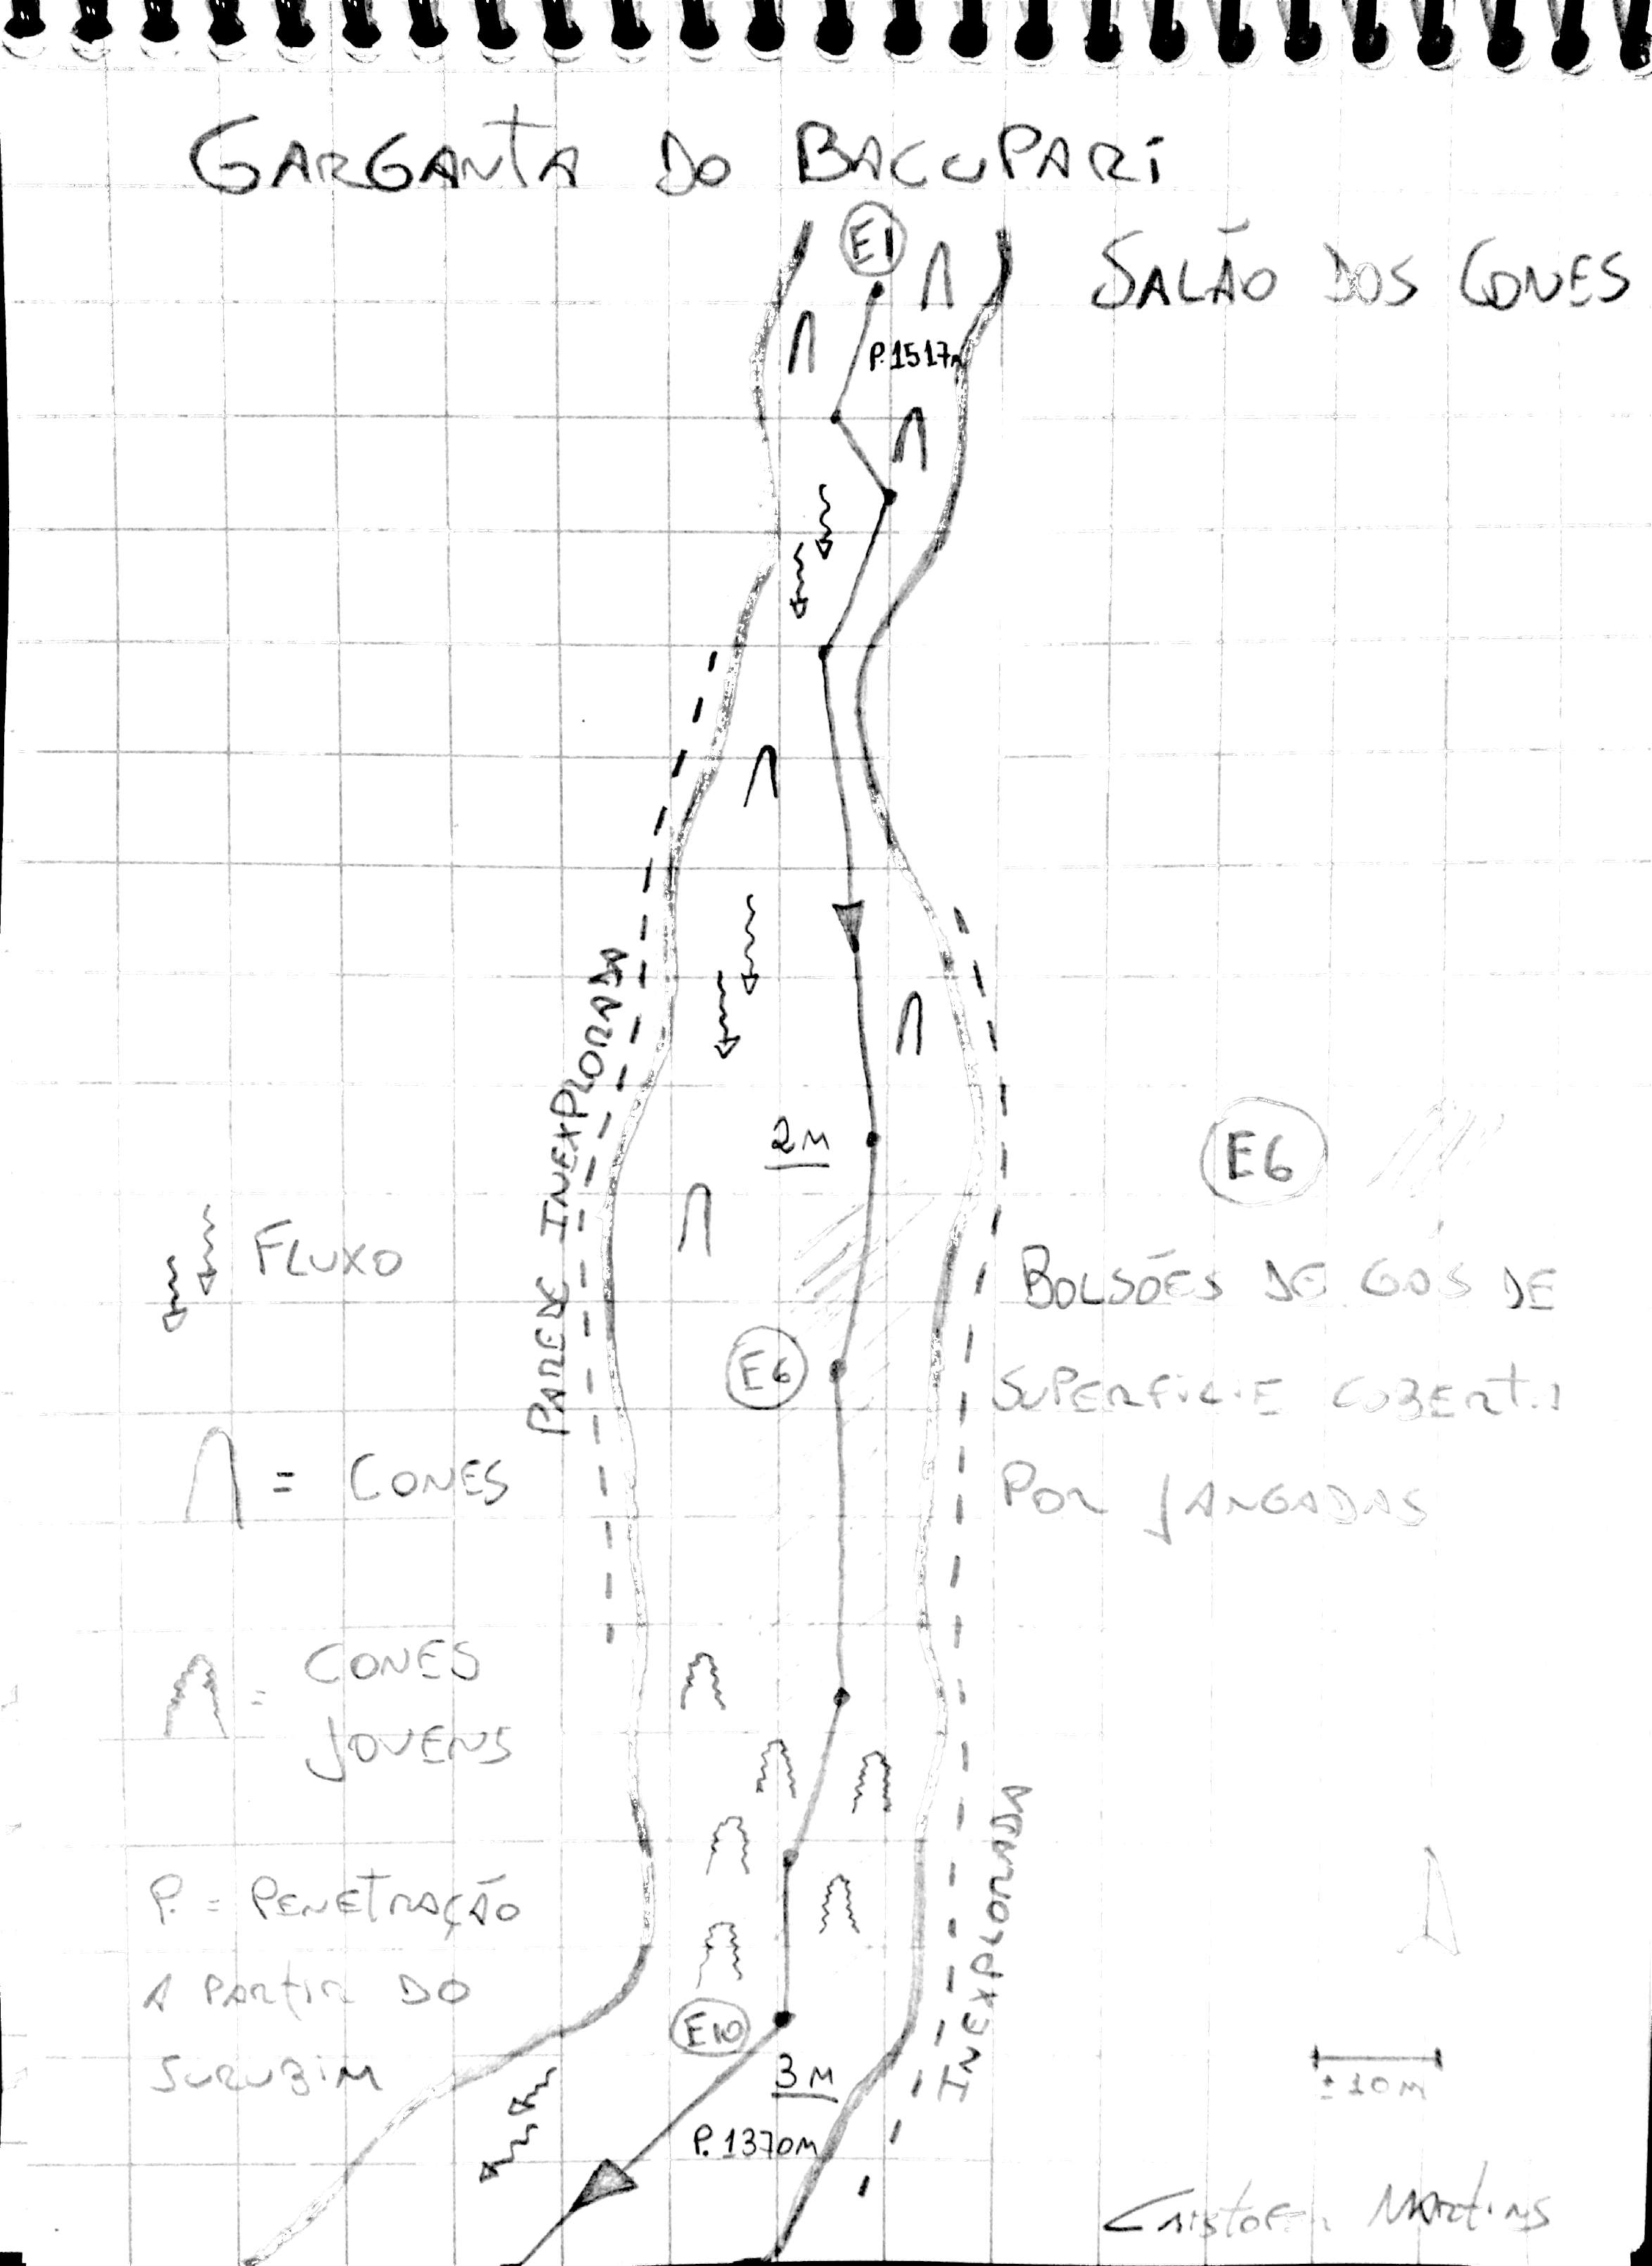 GARGANTA DO BACUPARI
E1
SALÃO DOS CONES
P.1517m
PAREDE INEXPLORADA
2M
E6
E6
BOLSÕES DE GÁS DE
SUPERFICIE COBERTA
POR JANGADAS
FLUXO
= CONES
= CONES
JOVENS
P. = PENETRAÇÃO
A PARTIR DO
SURUBIM
INEXPLORADA
E10
3M
P.1370M
± 10 M
CRISTOFER MARTINS